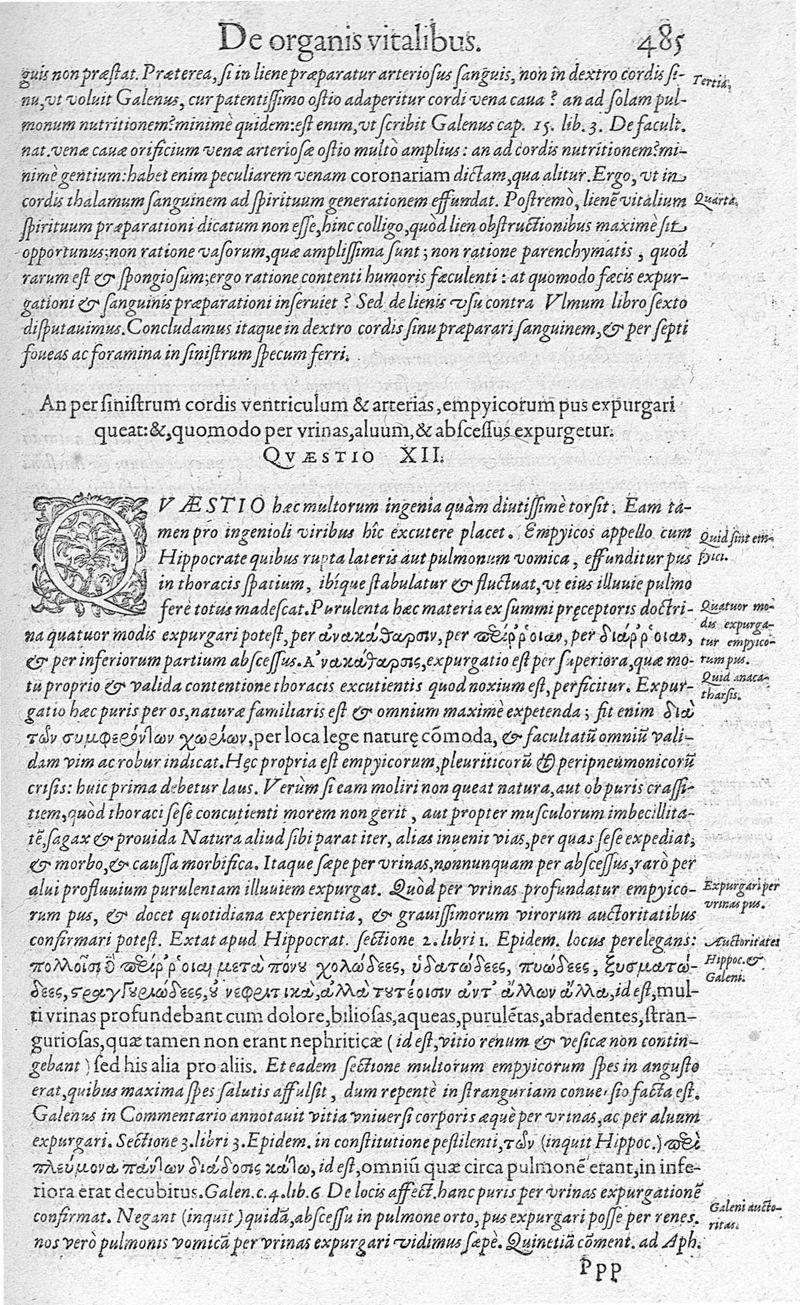 De organis vitalibus. 485
guis non præstat. Præterea, si in liene præparatur arteriosus sanguis, non in dextro cordis si-
nu, vt voluit Galenus, cur patentissimo ostio adaperitur cordi vena caua? an ad solam pul-
monum nutritionem? minimè quidem: est enim, vt scribit Galenus cap. 15. lib. 3. De facult.
nat. venæ cauæ orificium venæ arteriosæ ostio multò amplius: an ad cordis nutritionem? mi-
nimè gentium: habet enim peculiarem venam coronariam dictam, qua alitur. Ergo, vt in
cordis thalamum sanguinem ad spirituum generationem effundat. Postremò, lienē vitalium
spirituum præparationi dicatum non esse, hinc colligo, quòd lien obstructionibus maximè sit
opportunus; non ratione vasorum, quæ amplissima sunt; non ratione parenchymatis, quod
rarum est & spongiosum; ergo ratione contenti humoris fæculenti: at quomodo fæcis expur-
gationi & sanguinis præparationi inseruiet? Sed de lienis vsu contra Vlmum libro sexto
disputauimus. Concludamus itaque in dextro cordis sinu præparari sanguinem, & per septi
foueas ac foramina in sinistrum specum ferri.
Tertia.
Quarta.
An per sinistrum cordis ventriculum & arterias, empyicorum pus expurgari
queat: &, quomodo per vrinas, aluum, & abscessus expurgetur.
QVÆSTIO XII.
QVÆSTIO hæc multorum ingenia quàm diutissimè torsit. Eam ta-
men pro ingenioli viribus hîc excutere placet. Empyicos appello cum
Hippocrate quibus rupta lateris aut pulmonum vomica, effunditur pus
in thoracis spatium, ibique stabulatur & fluctuat, vt eius illuuie pulmo
ferè totus madescat. Purulenta hæc materia ex summi pręceptoris doctri-
na quatuor modis expurgari potest, per ἀνακάθαρσιν, per περίῤῥοιαν, per διάῤῥοιαν,
& per inferiorum partium abscessus. Ἀνακάθαρσις, expurgatio est per superiora, quæ mo-
tu proprio & valida contentione thoracis excutientis quod noxium est, perficitur. Expur-
gatio hæc puris per os, naturæ familiaris est & omnium maximè expetenda; fit enim διὰ
τῶν συμφερόντων χωρίων, per loca lege naturę cōmoda, & facultatū omniū vali-
dam vim ac robur indicat. Hęc propria est empyicorum, pleuriticorū & peripneumonicorū
crisis: huic prima debetur laus. Verùm si eam moliri non queat natura, aut ob puris crassi-
tiem, quòd thoraci sese concutienti morem non gerit, aut propter musculorum imbecillita-
tē, sagax & prouida Natura aliud sibi parat iter, alias inuenit vias, per quas sese expediat,
& morbo, & caussa morbifica. Itaque sæpe per vrinas, nonnunquam per abscessus, rarò per
alui profluuium purulentam illuuiem expurgat. Quòd per vrinas profundatur empyico-
rum pus, & docet quotidiana experientia, & grauissimorum virorum auctoritatibus
confirmari potest. Extat apud Hippocrat. sectione 2. libri 1. Epidem. locus perelegans:
πολλοῖσι δὲ περίῤῥοιαι μετὰ πόνου χολώδεες, ὑδατώδεες, πυώδεες, ξυσματώ-
δεες, στραγγουριώδεες, οὐ νεφριτικὰ, ἀλλὰ τουτέοισιν ἀντ' ἄλλων ἄλλα, id est, mul-
ti vrinas profundebant cum dolore, biliosas, aqueas, purulētas, abradentes, stran-
guriosas, quæ tamen non erant nephriticæ (id est, vitio renum & vesicæ non contin-
gebant) sed his alia pro aliis. Et eadem sectione multorum empyicorum spes in angusto
erat, quibus maxima spes salutis affulsit, dum repentè in stranguriam conuersio facta est.
Galenus in Commentario annotauit vitia vniuersi corporis æquè per vrinas, ac per aluum
expurgari. Sectione 3. libri 3. Epidem. in constitutione pestilenti, τῶν (inquit Hippoc.) περὶ
πλεύμονα πάντων διάδοσις κάτω, id est, omniū quæ circa pulmonē erant, in infe-
riora erat decubitus. Galen. c. 4. lib. 6 De locis affect. hanc puris per vrinas expurgationē
confirmat. Negant (inquit) quidā, abscessu in pulmone orto, pus expurgari posse per renes.
nos verò pulmonis vomicā per vrinas expurgari vidimus sæpè. Quinetiā cōment. ad Aph.
Quid sint em-
pyici.
Quatuor mo-
dis expurga-
tur empyico-
rum pus.
Quid anaca-
tharsis.
Expurgari per
vrinas pus.
Auctoritates
Hippoc. &
Galeni.
Galeni aucto-
ritas.
Ppp